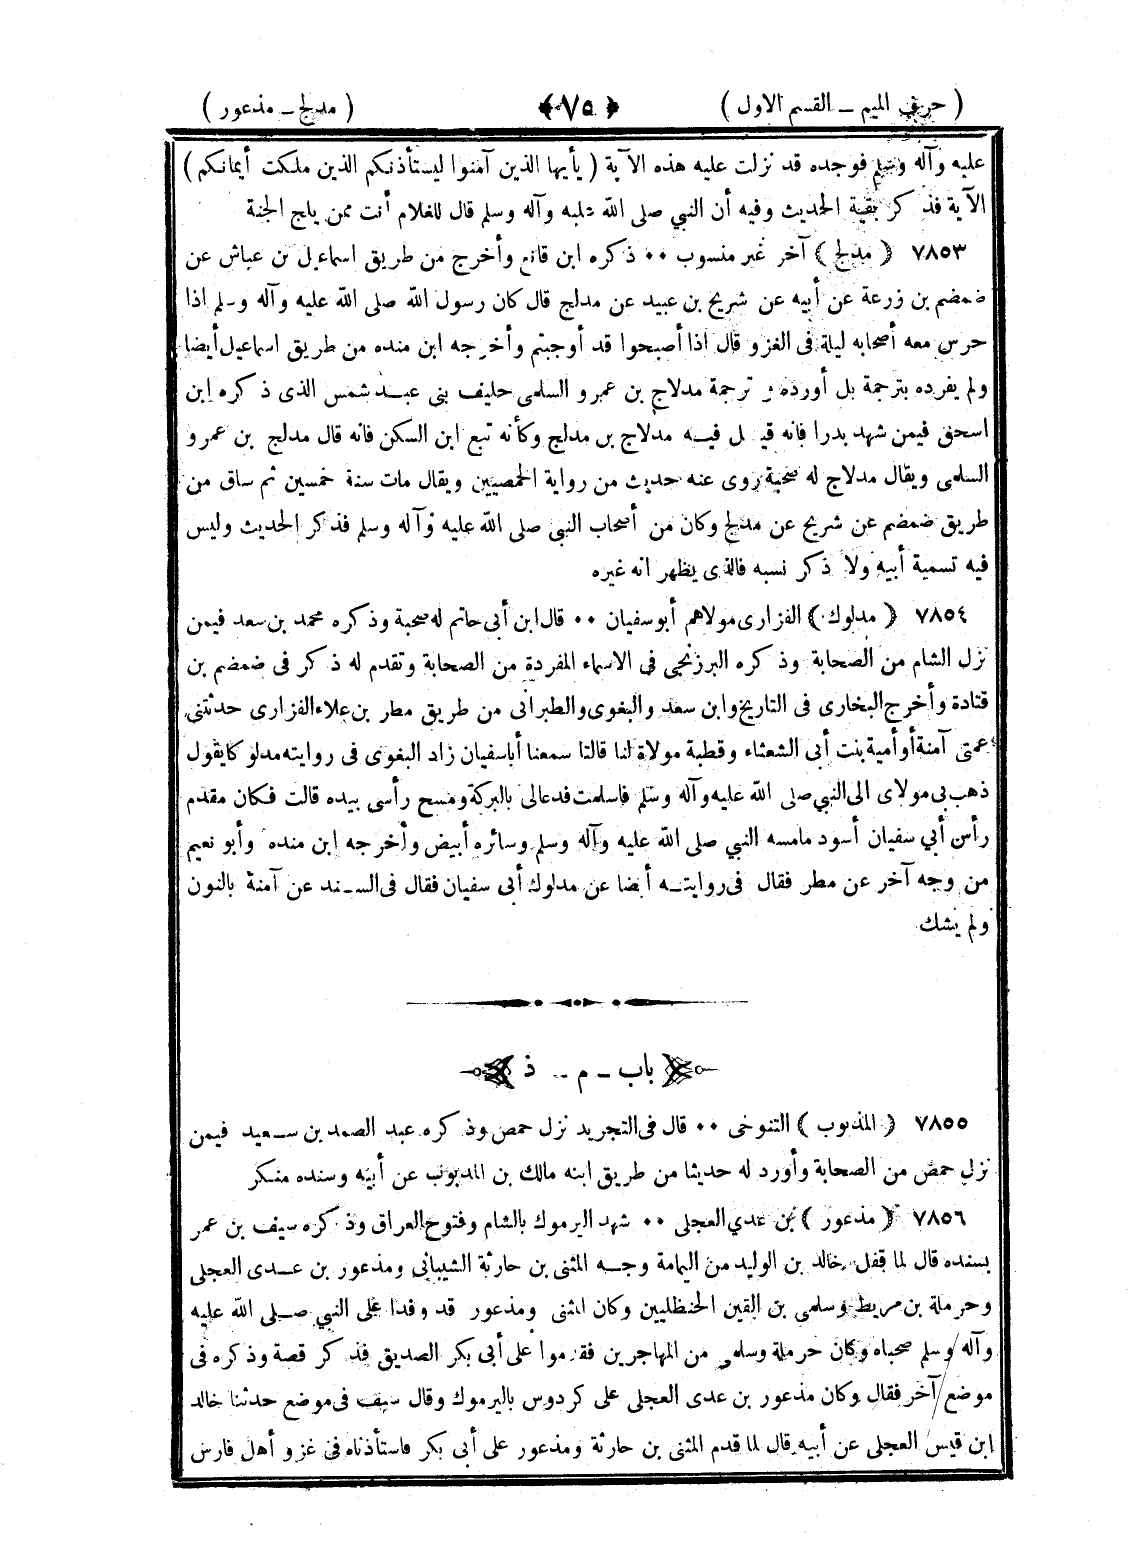 ( حرف الميم ــ القسم الاول ) ﴿ ٧٥ ﴾ ( مدلج ــ مذعور )
عليه وآله وسلم فوجده قد نزلت عليه هذه الآية ( يأيها الذين آمنوا ليستأذنكم الذين ملكت أيمانكم )
الآية فذكر بقية الحديث وفيه أن النبي صلى الله عليه وآله وسلم قال للغلام أنت ممن يلج الجنة
٧٨٥٣ ﴿ مدلج ﴾ آخر غير منسوب ٠٠ ذكره ابن قانع وأخرج من طريق اسماعيل بن عياش عن
ضمضم بن زرعة عن أبيه عن شريح بن عبيد عن مدلج قال كان رسول الله صلى الله عليه وآله وسلم اذا
حرس معه أصحابه ليلة فى الغزو قال اذا أصبحوا قد أوجبتم وأخرجه ابن منده من طريق اسماعيل أيضا
ولم يفرده بترجمة بل أورده فى ترجمة مدلاج بن عمرو السلمى حليف بنى عبد شمس الذى ذكره ابن
اسحق فيمن شهد بدرا فانه قيل فيه مدلاج بن مدلج وكأنه تبع ابن السكن فانه قال مدلج بن عمرو
السلمى ويقال مدلاج له صحبة روى عنه حديث من رواية الحمصيين ويقال مات سنة خمسين ثم ساق من
طريق ضمضم عن شريح عن مدلج وكان من أصحاب النبى صلى الله عليه وآله وسلم فذكر الحديث وليس
فيه تسمية أبيه ولا ذكر نسبه فالذى يظهر انه غيره
٧٨٥٤ ﴿ مدلوك ﴾ الفزارى مولاهم أبو سفيان ٠٠ قال ابن أبى حاتم له صحبة وذكره محمد بن سعد فيمن
نزل الشام من الصحابة وذكره البرزنجى فى الاسماء المفردة من الصحابة وتقدم له ذكر فى ضمضم بن
قتادة وأخرج البخارى فى التاريخ وابن سعد والبغوى والطبرانى من طريق مطر بن علاء الفزارى حدثتنى
عمتى آمنة أو أمية بنت أبى الشعثاء وقطبة مولاة لنا قالتا سمعنا أبا سفيان زاد البغوى فى روايته مدلوكا يقول
ذهب بى مولاى الى النبي صلى الله عليه وآله وسلم فاسلمت فدعالى بالبركة ومسح رأسى بيده قالت فكان مقدم
رأس أبي سفيان أسود مامسه النبي صلى الله عليه وآله وسلم وسائره أبيض وأخرجه ابن منده وأبو نعيم
من وجه آخر عن مطر فقال فى روايته أيضا عن مدلوك أبى سفيان فقال فى السند عن آمنة بالنون
ولم يشك
باب ــ م ــ ذ
٧٨٥٥ ﴿ المذبوب ﴾ التنوخى ٠٠ قال فى التجريد نزل حمص وذكره عبد الصمد بن سعيد فيمن
نزل حمص من الصحابة وأورد له حديثا من طريق ابنه مالك بن المذبوب عن أبيه وسنده منكر
٧٨٥٦ ﴿ مذعور ﴾ بن عدي العجلى ٠٠ شهد اليرموك بالشام وفتوح العراق وذكره سيف بن عمر
بسنده قال لما قفل خالد بن الوليد من اليمامة وجه المثنى بن حارثة الشيباني ومذعور بن عدى العجلى
وحرملة بن مريط وسلمى بن القين الحنظليين وكان المثنى ومذعور قد وفدا على النبي صلى الله عليه
وآله وسلم صحباه وكان حرملة وسلمى من المهاجرين فقدموا على أبى بكر الصديق فذكر قصة وذكره فى
موضع آخر فقال وكان مذعور بن عدى العجلى على كردوس باليرموك وقال سيف فى موضع حدثنا خالد
ابن قيس العجلى عن أبيه قال لما قدم المثنى بن حارثة ومذعور على أبى بكر فاستأذناه فى غزو أهل فارس